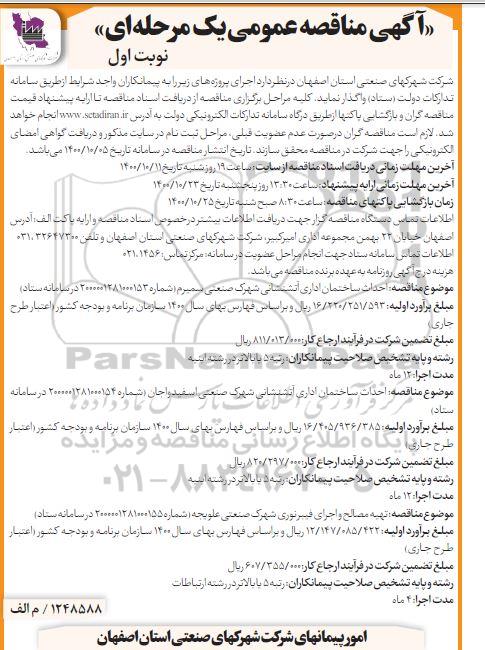 «آگهی مناقصه عمومی یک مرحله‌ای»
نوبت اول
شرکت شهرکهای صنعتی استان اصفهان درنظر دارد اجرای پروژه‌های زیر را به پیمانکاران واجد شرایط ازطریق سامانه
تدارکات دولت (ستاد) واگذار نماید. کلیه مراحل برگزاری مناقصه از دریافت اسناد مناقصه تا ارایه پیشنهاد قیمت
مناقصه گران و بازگشایی پاکتها ازطریق درگاه سامانه تدارکات الکترونیکی دولت به آدرس www.sctadiran.ir انجام خواهد
شد. لازم است مناقصه گران درصورت عدم عضویت قبلی، مراحل ثبت نام در سایت مذکور و دریافت گواهی امضای
الکترونیکی را جهت شرکت در مناقصه محقق سازند. تاریخ انتشار مناقصه در سامانه تاریخ ۱۴۰۰/۱۰/۰۵ می‌باشد.
آخرین مهلت زمانی دریافت اسناد مناقصه از سایت: ساعت ۱۹ روز شنبه تاریخ ۱۴۰۰/۱۰/۱۱
آخرین مهلت زمانی ارایه پیشنهاد: ساعت ۱۳:۳۰ روز پنجشنبه تاریخ ۱۴۰۰/۱۰/۲۳
زمان بازگشایی پاکتهای مناقصه: ساعت ۸:۳۰ صبح شنبه تاریخ ۱۴۰۰/۱۰/۲۵
اطلاعات تماس دستگاه مناقصه گزار جهت دریافت اطلاعات بیشتر درخصوص اسناد مناقصه و ارایه پاکت الف: آدرس
اصفهان خیابان ۲۲ بهمن مجموعه اداری امیرکبیر، شرکت شهرکهای صنعتی استان اصفهان و تلفن ۳۲۶۴۷۳۰۰-۰۳۱
اطلاعات تماس سامانه ستاد جهت انجام مراحل عضویت در سامانه: مرکز تماس: ۱۴۵۶-۰۲۱
هزینه درج آگهی روزنامه به عهده برنده مناقصه می‌باشد.
موضوع مناقصه: احداث ساختمان اداری آتشنشانی شهرک صنعتی سمیرم (شماره ۲۰۰۰۰۰۱۲۸۱۰۰۰۱۵۳ در سامانه ستاد)
مبلغ برآورد اولیه: ۱۶/۲۲۰/۲۵۱/۵۹۳ ریال و براساس فهارس بهای سال ۱۴۰۰ سازمان برنامه و بودجه کشور (اعتبار طرح
جاری)
مبلغ تضمین شرکت در فرآیند ارجاع کار: ۸۱۱/۰۱۳/۰۰۰ ریال
رشته و پایه تشخیص صلاحیت پیمانکاران: رتبه ۵ یا بالاتر در رشته ابنیه
مدت اجرا: ۱۲ ماه
موضوع مناقصه: احداث ساختمان اداری آتشنشانی شهرک صنعتی اسفیدواجان (شماره ۲۰۰۰۰۰۱۲۸۱۰۰۰۱۵۴ در سامانه
ستاد)
مبلغ برآورد اولیه: ۱۶/۴۰۵/۹۳۶/۳۸۵ ریال و براساس فهارس بهای سال ۱۴۰۰ سازمان برنامه و بودجه کشور (اعتبار
طرح جاری)
مبلغ تضمین شرکت در فرآیند ارجاع کار: ۸۲۰/۲۹۷/۰۰۰ ریال
رشته و پایه تشخیص صلاحیت پیمانکاران: رتبه ۵ یا بالاتر در رشته ابنیه
مدت اجرا: ۱۲ ماه
موضوع مناقصه: تهیه مصالح و اجرای فیبرنوری شهرک صنعتی علویجه (شماره ۲۰۰۰۰۰۱۲۸۱۰۰۰۱۵۵ در سامانه ستاد)
مبلغ برآورد اولیه: ۱۲/۱۴۷/۰۸۵/۴۲۲ ریال و براساس فهارس بهای سال ۱۴۰۰ سازمان برنامه و بودجه کشور (اعتبار
طرح جاری)
مبلغ تضمین شرکت در فرآیند ارجاع کار: ۶۰۷/۳۵۵/۰۰۰ ریال
رشته و پایه تشخیص صلاحیت پیمانکاران: رتبه ۵ یا بالاتر در رشته ارتباطات
مدت اجرا: ۴ ماه
۱۲۴۸۵۸۸ / م الف
امور پیمانهای شرکت شهرکهای صنعتی استان اصفهان